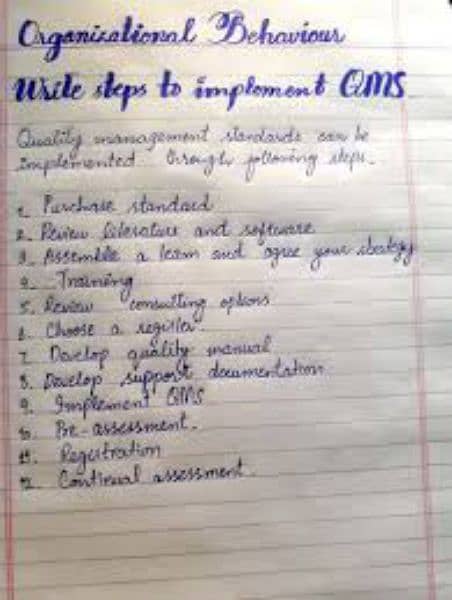 Organizational Behaviour
Write steps to implement QMS
Quality management standards can be
implemented through following steps.
1. Purchase standard
2. Review literature and software
3. Assemble a team and agree your strategy
4. Training
5. Review consulting options
6. Choose a register.
7. Develop quality manual
8. Develop support documentation
9. Implement QMS
10. Pre-assessment.
11. Registration
12. Continual assessment.